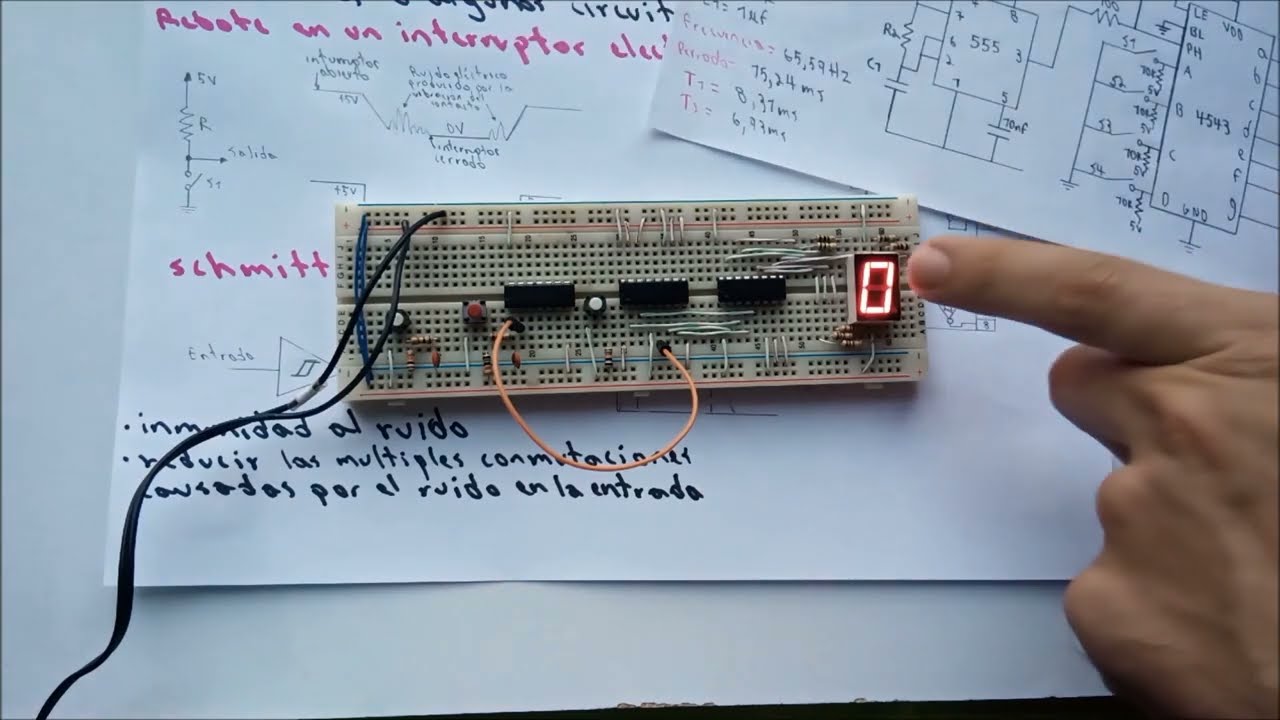 algunos circuit
Rebote en un interruptor elec
interruptor
abierto
+5V
Ruido eléctrico
producido por la
vibración del
contacto
0V
interruptor
cerrado
5V
R
Salida
S1
+5V
schmitt
Entrada
• inmunidad al ruido
• reducir las multiples conmutaciones
causadas por el ruido en la entrada
1µf
Frecuencia = 65,59Hz
Periodo = 15,24ms
8,31ms
6,93ms
7
8
6
2
555
3
5
10nf
100
LE
BL
PH
VDD
A
B
C
D
GND
4543
a
b
c
d
e
f
g
S1
S2
S3
S4
10k
5V
10k
5V
10k
5V
10k
5V
8